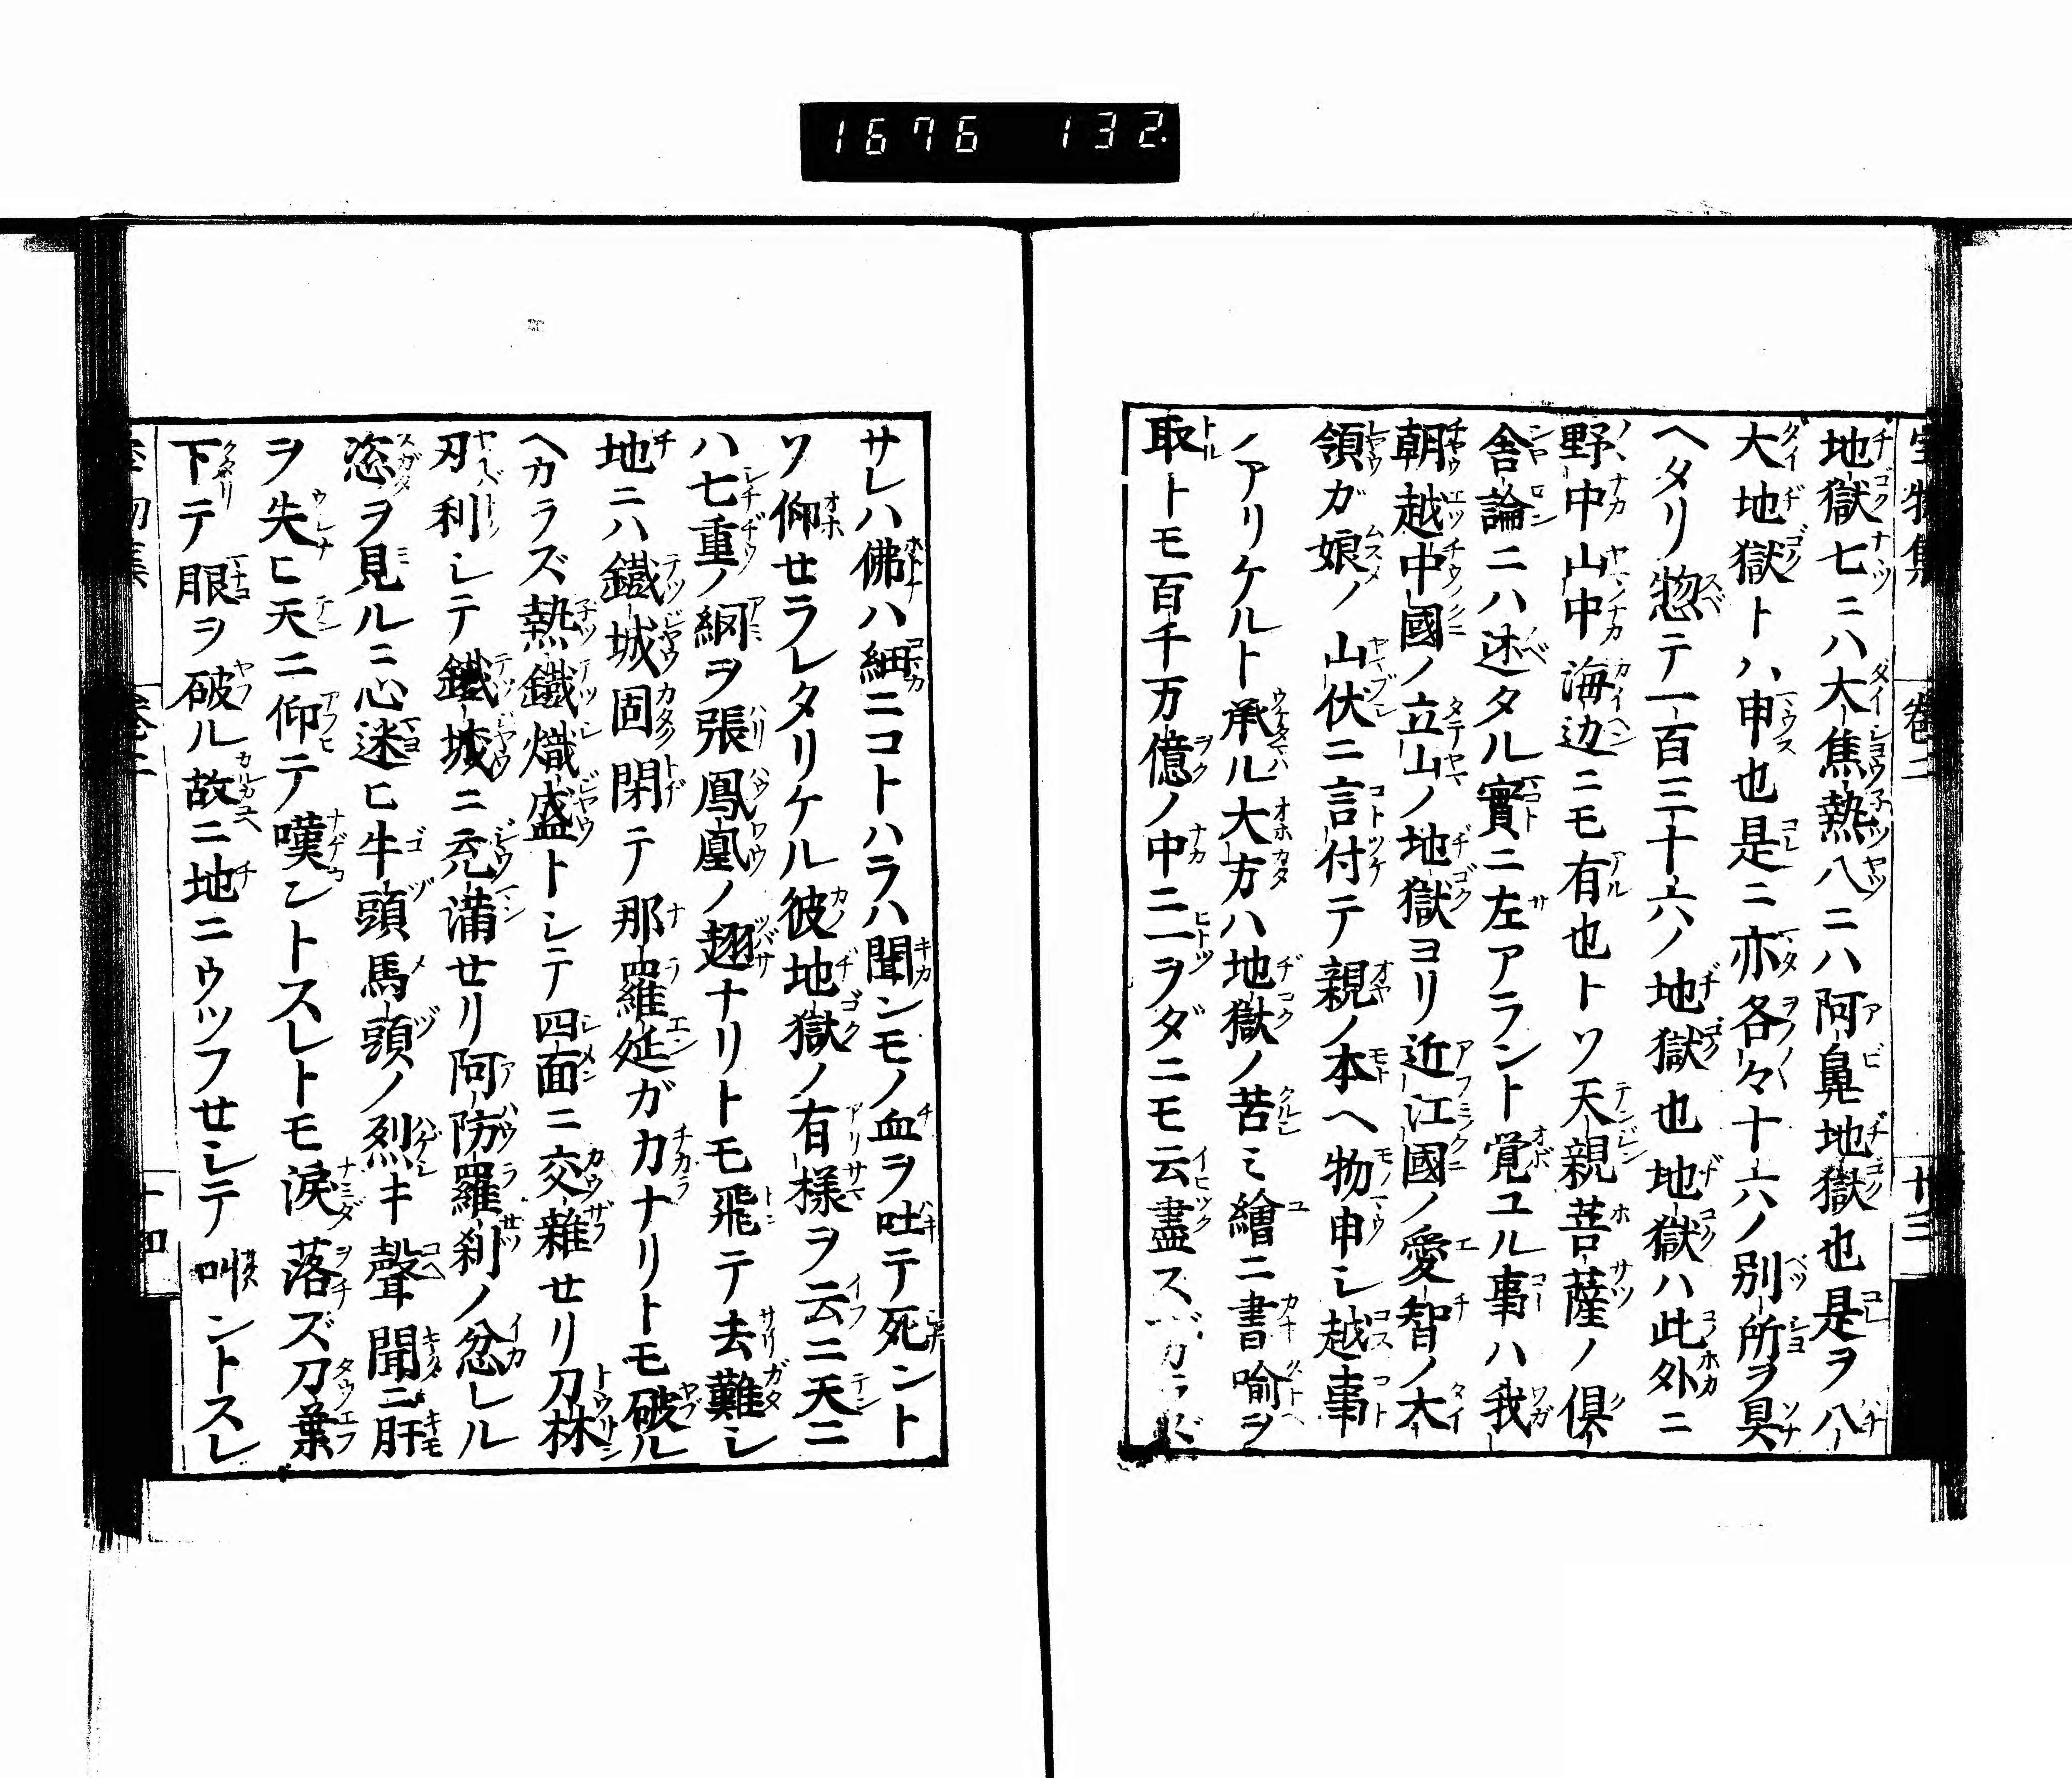 1676 132.
地獄七ニハ大焦熱八ニハ阿鼻地獄也是ヲ八
大地獄トハ申也是ニ亦各々十六ノ別所ヲ具
ヘタリ惣テ一百三十六ノ地獄也地獄ハ此外ニ
野中山中海边ニモ有也トソ天親菩薩ノ倶
舎論ニハ述タル實ニ左アラント覚ユル事ハ我
朝越中國ノ立山ノ地獄ヨリ近江國ノ愛智ノ大
領ガ娘ノ山伏ニ言付テ親ノ本ヘ物申シ越事
ノアリケルト承ル大方ハ地獄ノ苦ミ繪ニ書喩ヲ
取トモ百千万億ノ中ニ一ヲダニモ云盡スベカラズ
サレハ佛ハ細ニコトハラハ聞ンモノ血ヲ吐テ死ント
ソ仰せラレタリケル彼地獄ノ有様ヲ云ニ天ニ
ハ七重ノ網ヲ張鳳凰ノ翅ナリトモ飛テ去難シ
地ニハ鐵城固閉テ那羅延ガ力ナリトモ破ル
ヘカラズ熱鐵熾盛トシテ四面ニ交雜せリ刀林
刃利シテ鐵城ニ充満せリ阿防羅刹ノ忿レル
恣ヲ見ルニ心迷ヒ牛頭馬頭ノ烈キ聲聞ニ肝
ヲ失ヒ天ニ仰テ嘆ントスレトモ涙落ズ刀葉
下テ眼ヲ破ル故ニ地ニウツフせシテ叫ントスレ